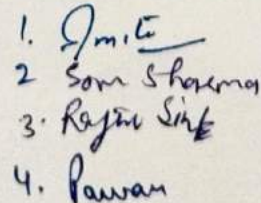 1. Amit
2 Som Sharma
3. Rajiv Singh
4. Pawan